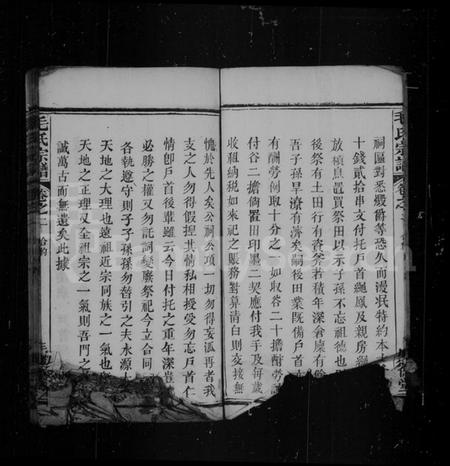 毛氏宗譜 卷之一
祠區對悉嚴爵等恐久而漫泯特約本
十錢貳拾串文付托戶首 颺鳳及親房
放積息置買祭田以示子孫不忘祖德也
後祭有土田行有資斧若積年深倉廒有餘
吾子孫早潦有濟矣嗣後田業既備戶首
有酬勞例取十分之一如收谷二十擔酬勞
付谷二擔倘置田印墨二契應付我手及每歲
收租納稅如來祀之賬務對算清白則交接無
愧於先人矣公祠公項一切勿得妄派再者我
支之人勿得假捏其情私相授受勿忘戶首仁
情卽戶首後輩雖云今日付托之重年深豈
必勝之權又勿託詞變廢祭祀今立合同
各執遵守則子子孫孫勿替引之夫水源
天地之大理也遠祖近宗同族之一氣也
天地之正理又全祖宗之一氣則吾門之
誠萬古而無遺矣此據
毛氏宗譜 卷之一 合約